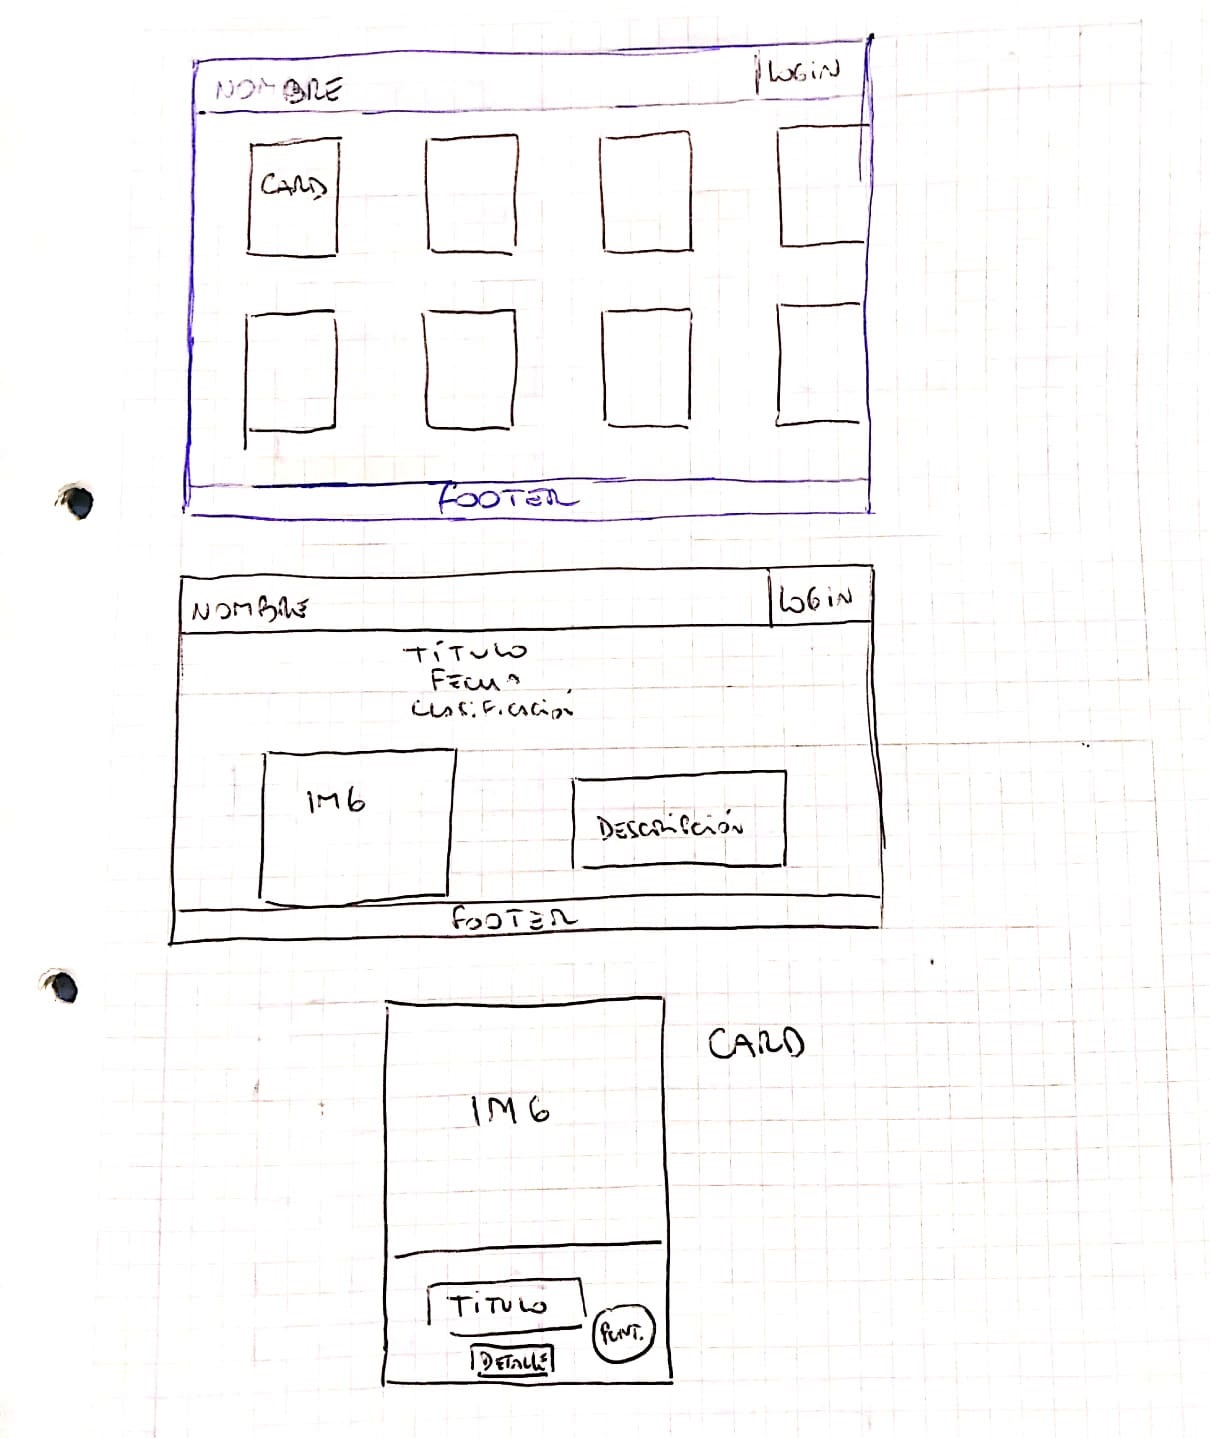 NOMBRE
LOGIN
CARD
FOOTER
NOMBRE
LOGIN
TÍTULO
FECHA
CLASIFICACIÓN
IMG
DESCRIPCIÓN
FOOTER
CARD
IMG
TITULO
PUNT.
DETALLE